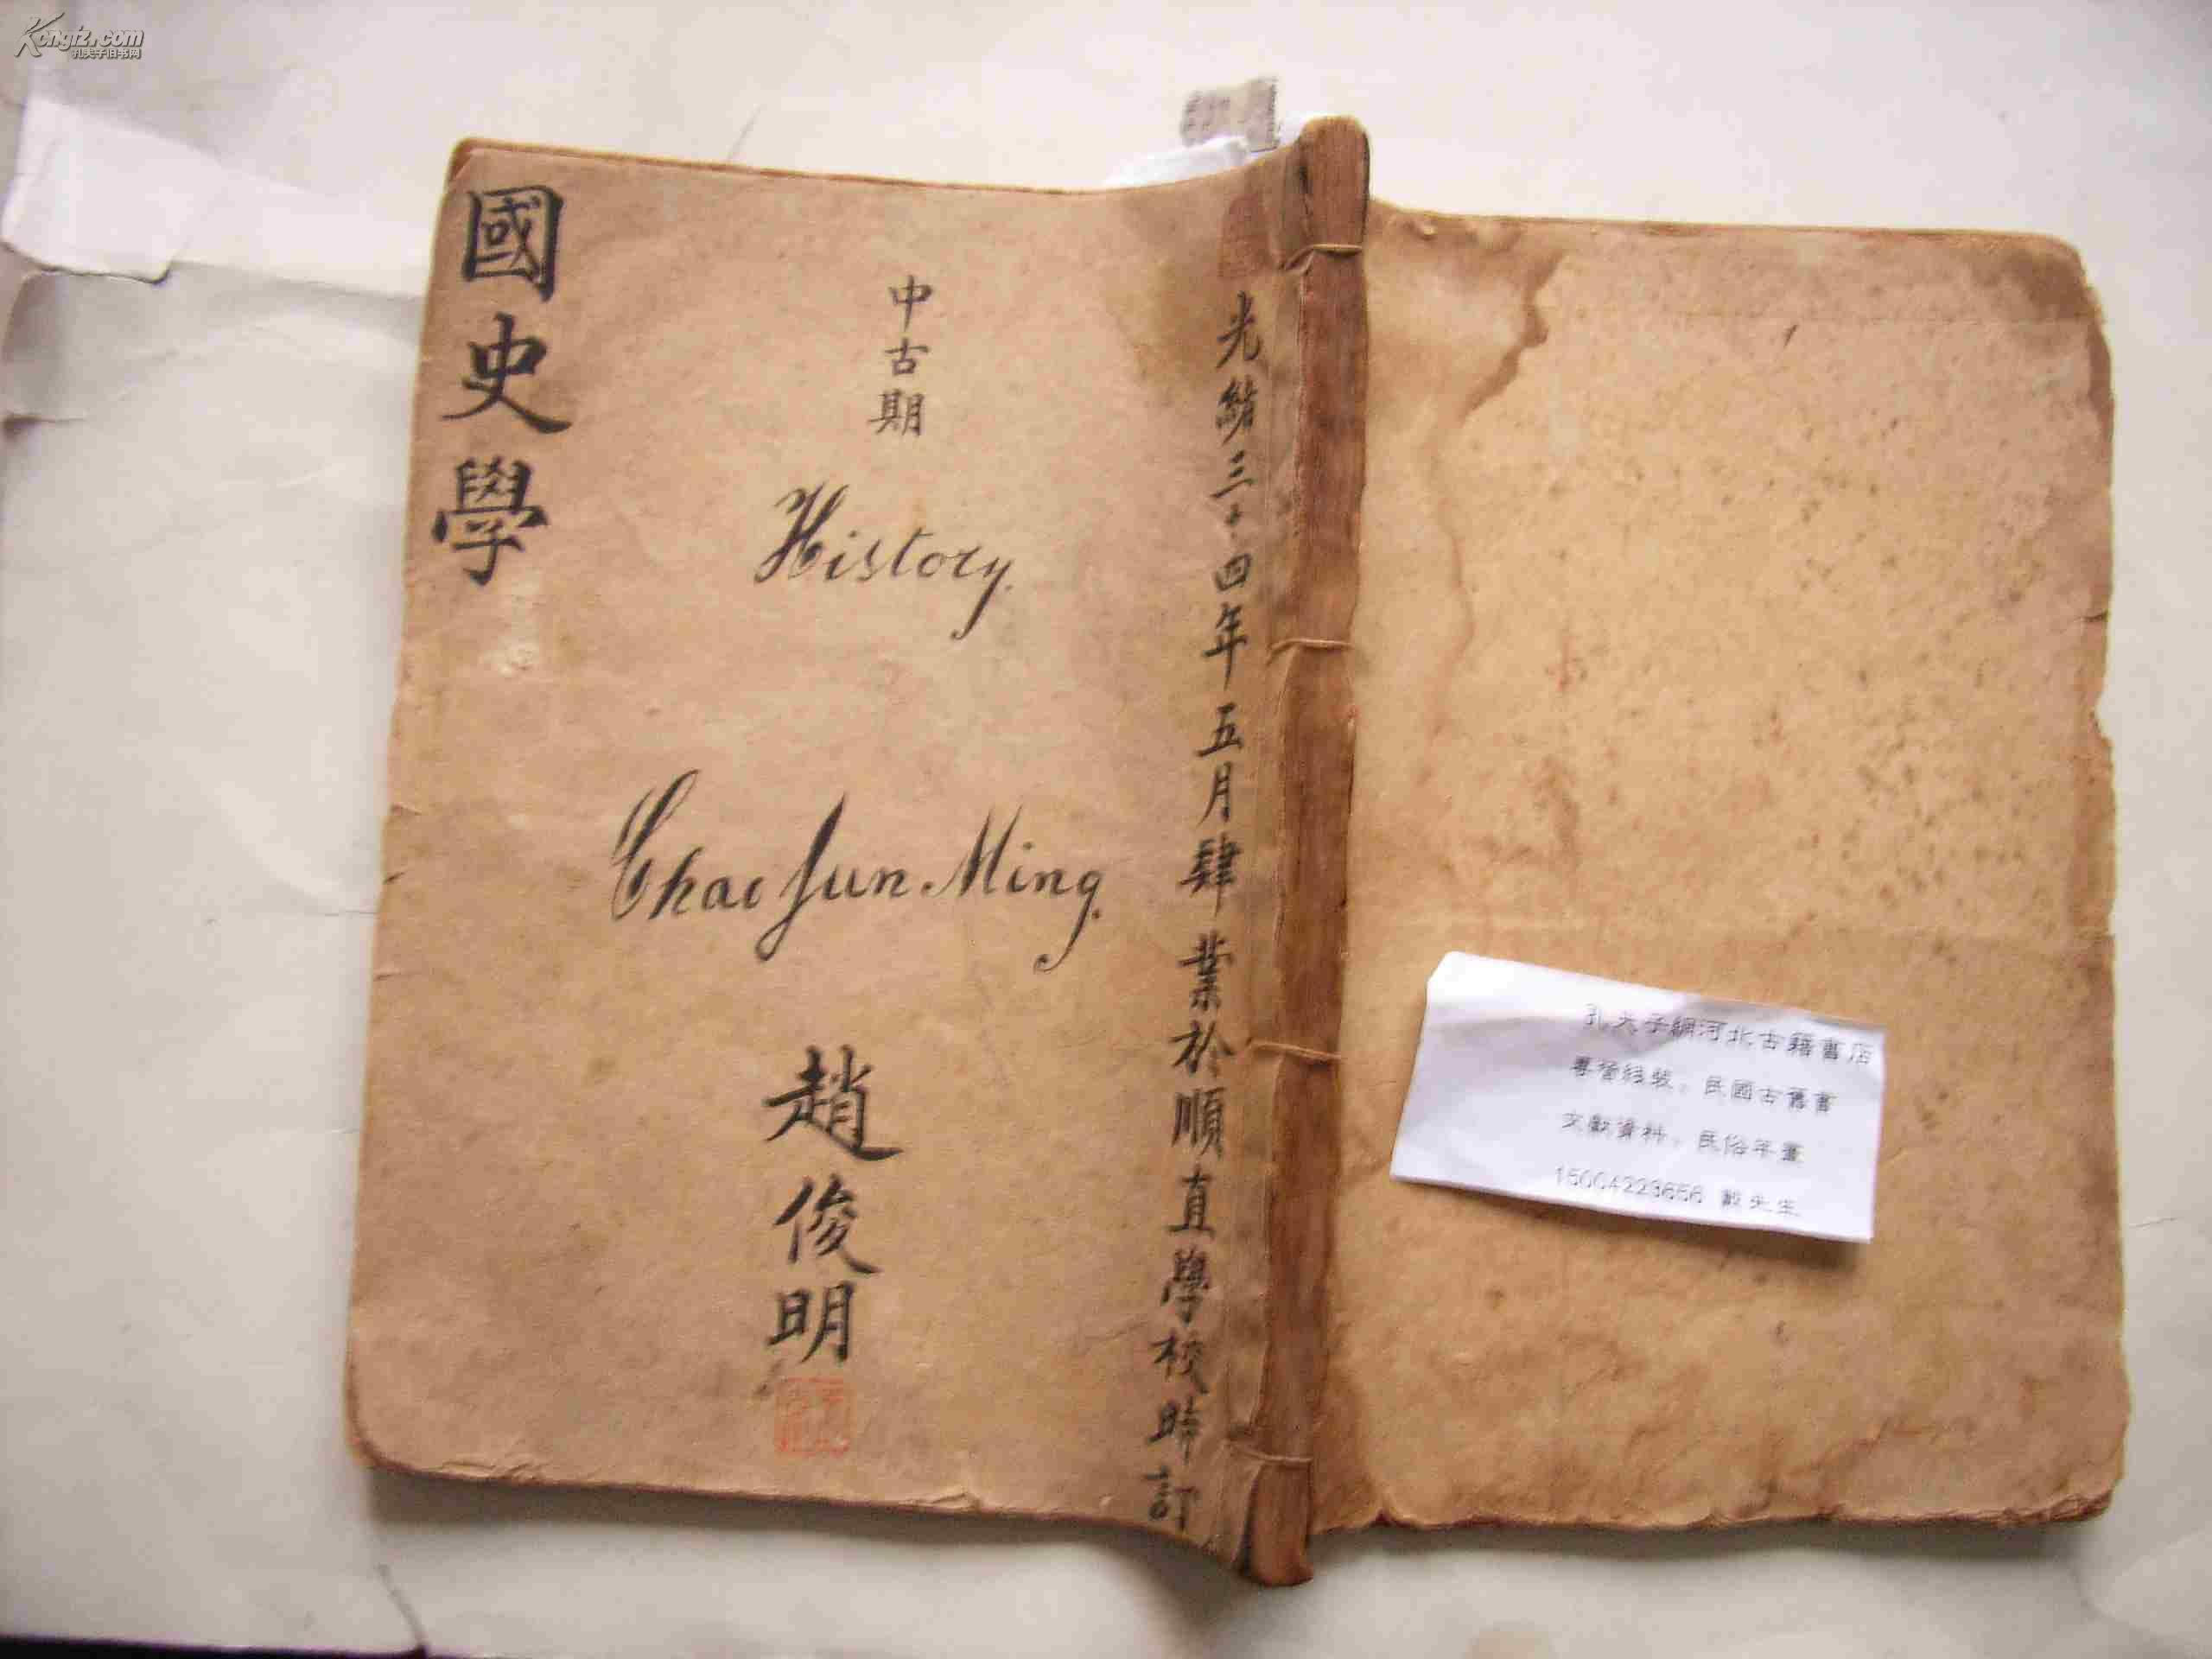 Kongfz.com
孔夫子旧书网
國史學
中古期
History.
Chao Jun Ming.
趙俊明
光緒三十四年五月肄業於順直學校時訂
孔夫子網河北古籍書店
專營线裝，民國古舊書
文獻資料，民俗年畫
先生